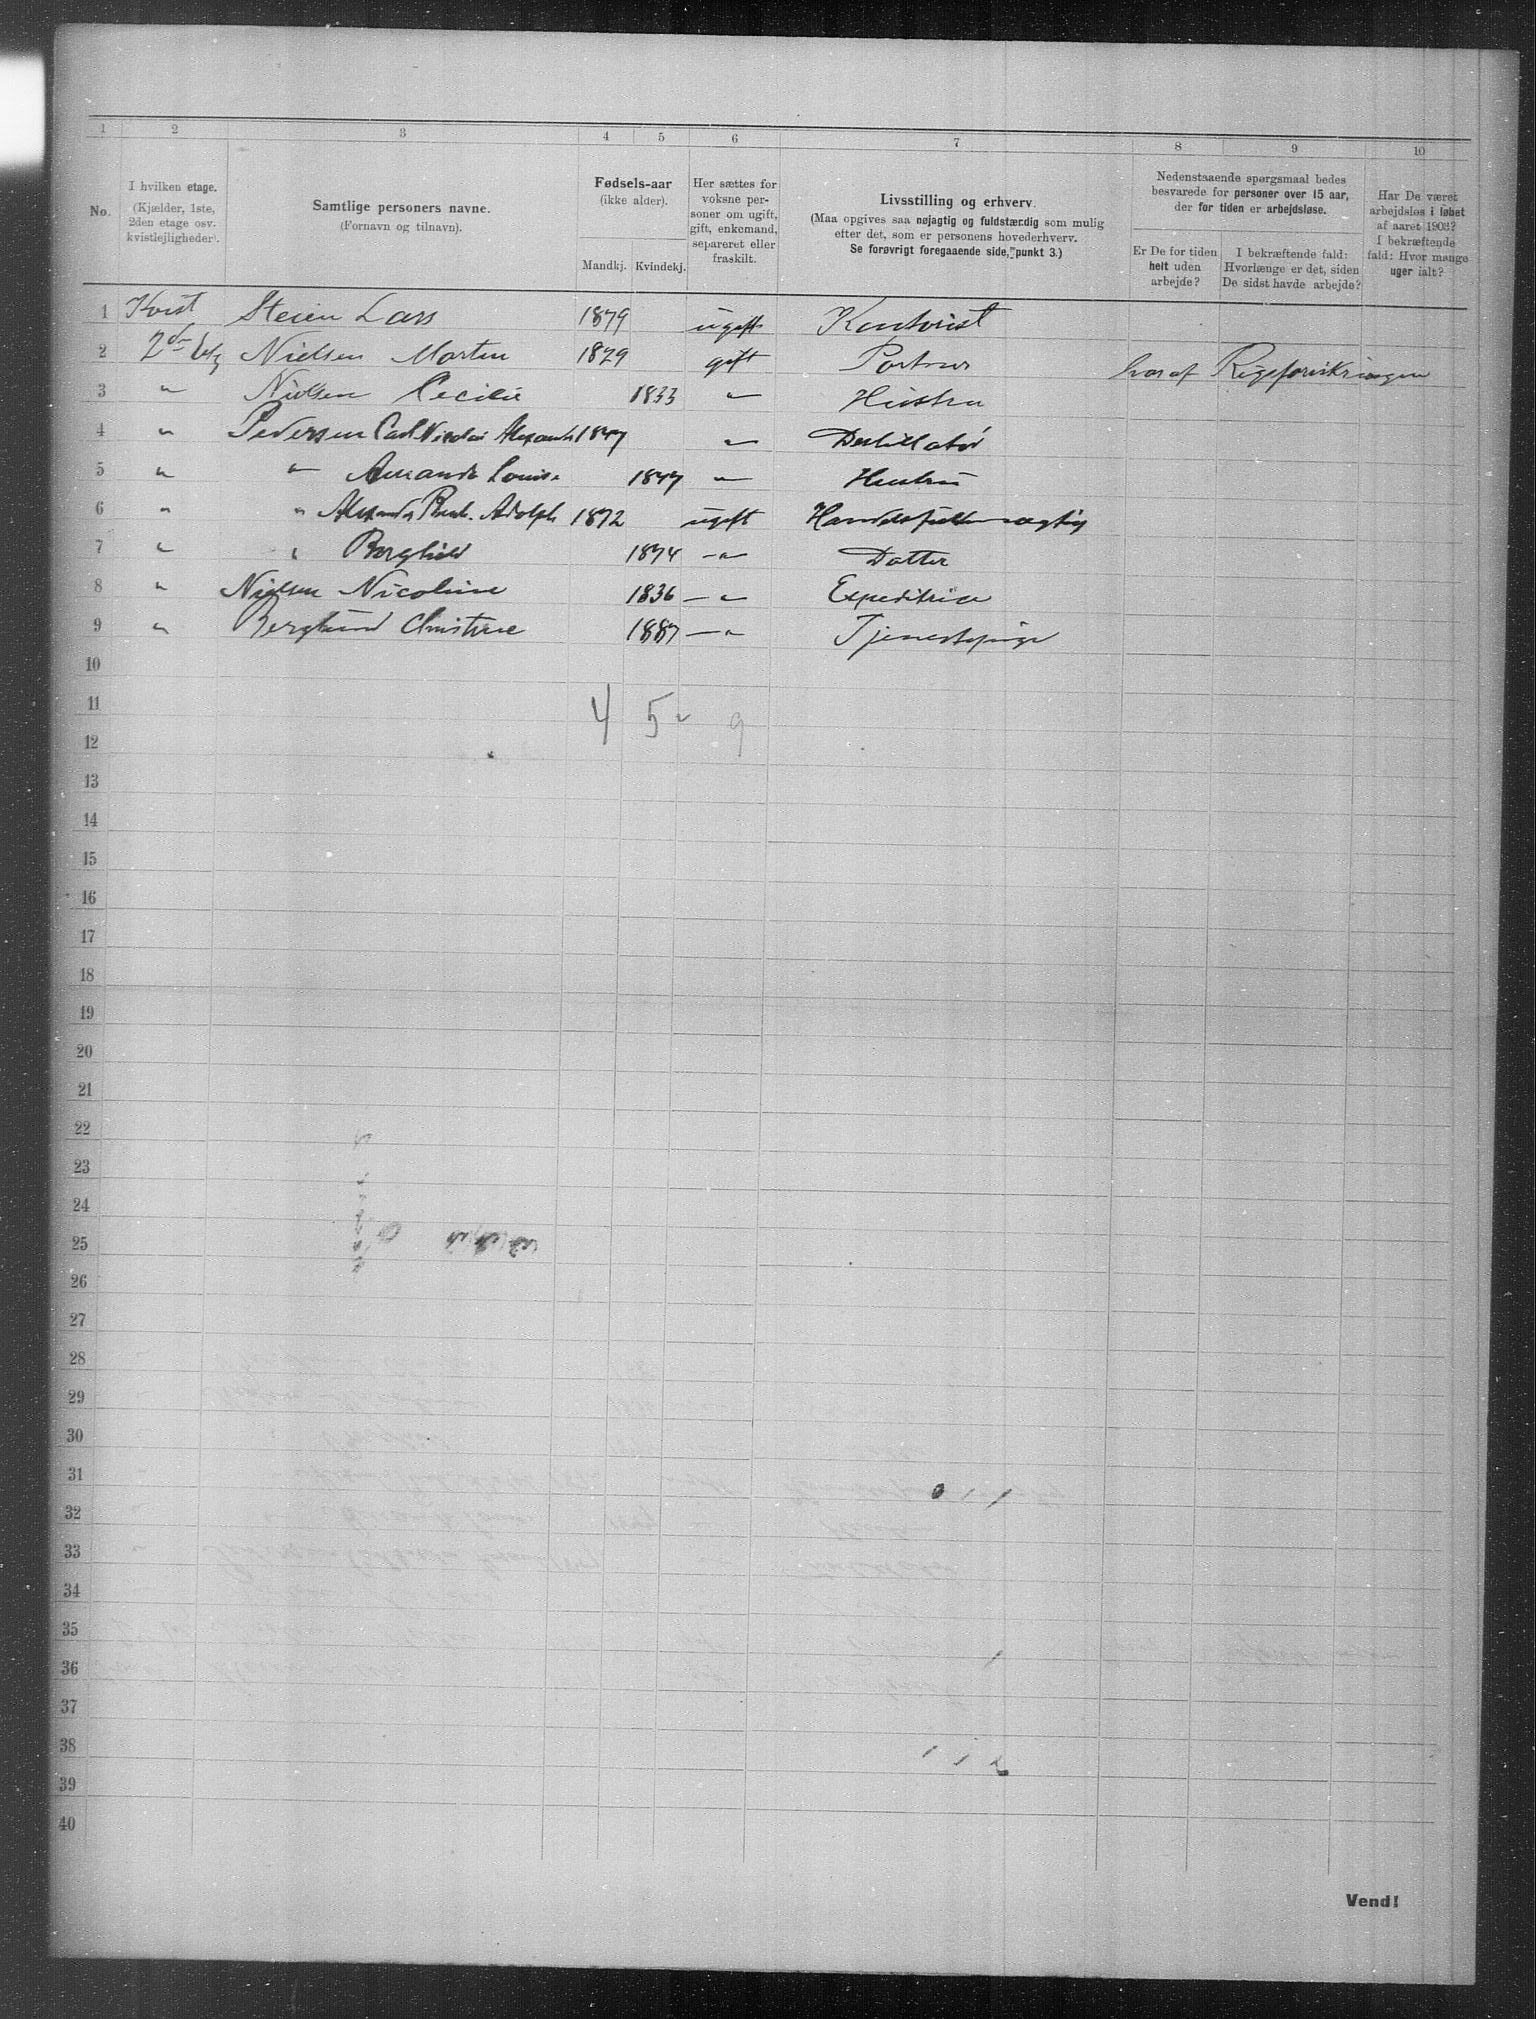 1 2 3 4 5 6 7 8 9 10
No.
I hvilken etage.
(Kjælder, 1ste,
2den etage osv.
kvistlejligheder).
Samtlige personers navne.
(Fornavn og tilnavn).
Fødsels-aar
(ikke alder).
Mandkj. Kvindekj.
Her sættes for
voksne per-
soner om ugift,
gift, enkemand,
separeret eller
fraskilt.
Livsstilling og erhverv.
(Maa opgives saa nøjagtig og fuldstændig som mulig
efter det, som er personens hovederhverv.
Se forøvrigt foregaaende side, punkt 3.)
Nedenstaaende spørgsmaal bedes
besvarede for personer over 15 aar,
der for tiden er arbejdsløse.
Er De for tiden
helt uden
arbejde?
I bekræftende fald:
Hvorlænge er det, siden
De sidst havde arbejde?
Har De været
arbejdsløs i løbet
af aaret 1903?
I bekræftende
fald: Hvor mange
uger ialt?
1 Kvist Steien Lars 1879 ugift Kontorist
2 2den Nielsen Morten 1829 gift
3 " Nielsen Cecilie 1833 " Hustru
4 " Pedersen Carl Nicolai 1847 " Destillatør
5 " " Amanda Louise 1847 " Hustru
6 " " Adolph 1872 ugift Handelsfuldmægtig
7 " " Borghild 1874 " Datter
8 " Nielsen Nicoline 1836 " Expeditrice
9 " Berglund Christine 1887 " Tjenestepige
10
11 4 5 9
12
13
14
15
16
17
18
19
20
21
22
23
24
25
26
27
28
29
30
31
32
33
34
35
36
37
38
39
40
Vend!